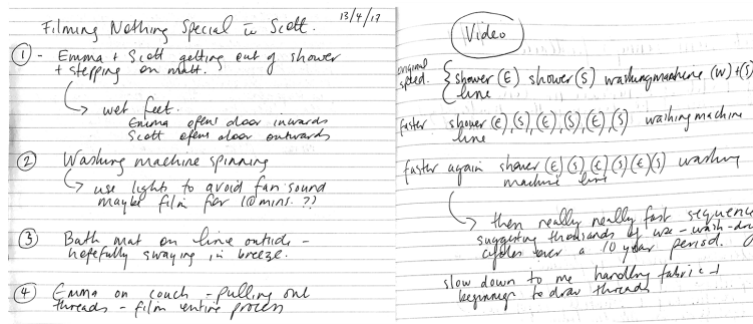 13/4/17
Filming Nothing Special in Scott.
① - Emma + Scott getting out of shower
+ stepping on matt.
↳ wet feet.
Emma opens door inwards
Scott opens door outwards
② Washing machine spinning
↳ use lights to avoid fan sound
maybe film for 10 mins. ??
③ Bath mat on line outside -
hopefully swaying in breeze.
④ Emma on couch - pulling out
threads - film entire process
Video
original
speed. { shower (E) shower (S) washing machine (W)+(S)
line
faster shower (E),(S),(E),(S),(E),(S) washing machine
line
faster again shower (E)(S)(E)(S)(E)(S) washing
machine line
↳ then really really fast sequence
suggesting thousands of use-wash-
cycles over a 10 year period.
slow down to me handling fabric +
beginning to draw threads